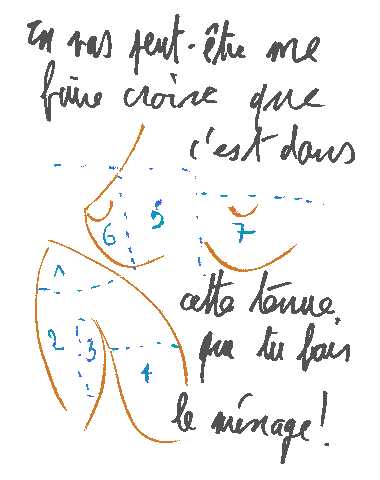 Tu vas peut-être me
faire croire que
c'est dans
6 5 7
1
cette tenue
2 3 4
que tu fais
le ménage!